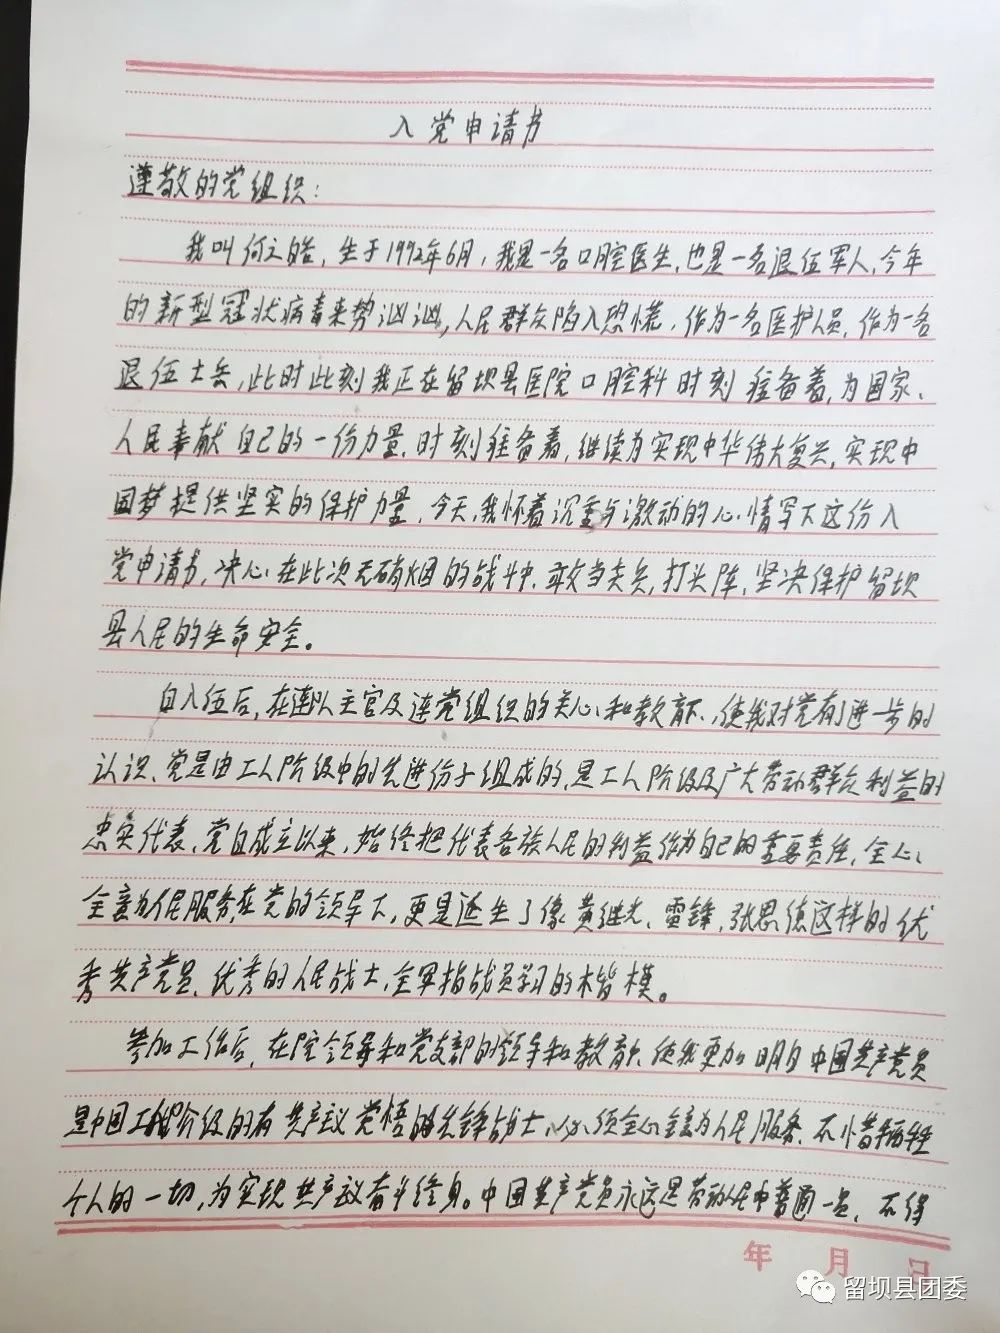 入党申请书
遵敬的党组织：
我叫何文皓，生于1992年6月，我是一名口腔医生，也是一名退伍军人，今年
的新型冠状病毒来势汹汹，人民群众陷入恐慌，作为一名医护人员，作为一名
退伍士兵，此时此刻我正在留坝县医院口腔科时刻准备着，为国家、
人民奉献自己的一份力量，时刻准备着，继续为实现中华伟大复兴，实现中
国梦提供坚实的保护力量，今天，我怀着沉重与激动的心情写下这份入
党申请书，决心在此次无硝烟的战斗中，敢当尖兵，打头阵，坚决保护留坝
县人民的生命安全。
自入伍后，在连队主官及连党组织的关心和教育下，使我对党有了进一步的
认识、党是由工人阶级中的先进份子组成的，是工人阶级及广大劳动群众利益的
忠实代表，党自成立以来，始终把代表各族人民的利益作为自己的重要责任，全心
全意为人民服务，在党的领导下，更是诞生了像黄继光、雷锋，张思德这样的优
秀共产党员、优秀的人民战士，全军指战员学习的楷模。
参加工作后，在院领导和党支部的领导和教育下，使我更加明白中国共产党员
是中国工人阶级的有共产主义觉悟的先锋战士，必须全心全意为人民服务，不惜牺牲
个人的一切，为实现共产主义奋斗终身。中国共产党员永远是劳动人民中普通一员，不得
年 月 日
留坝县团委